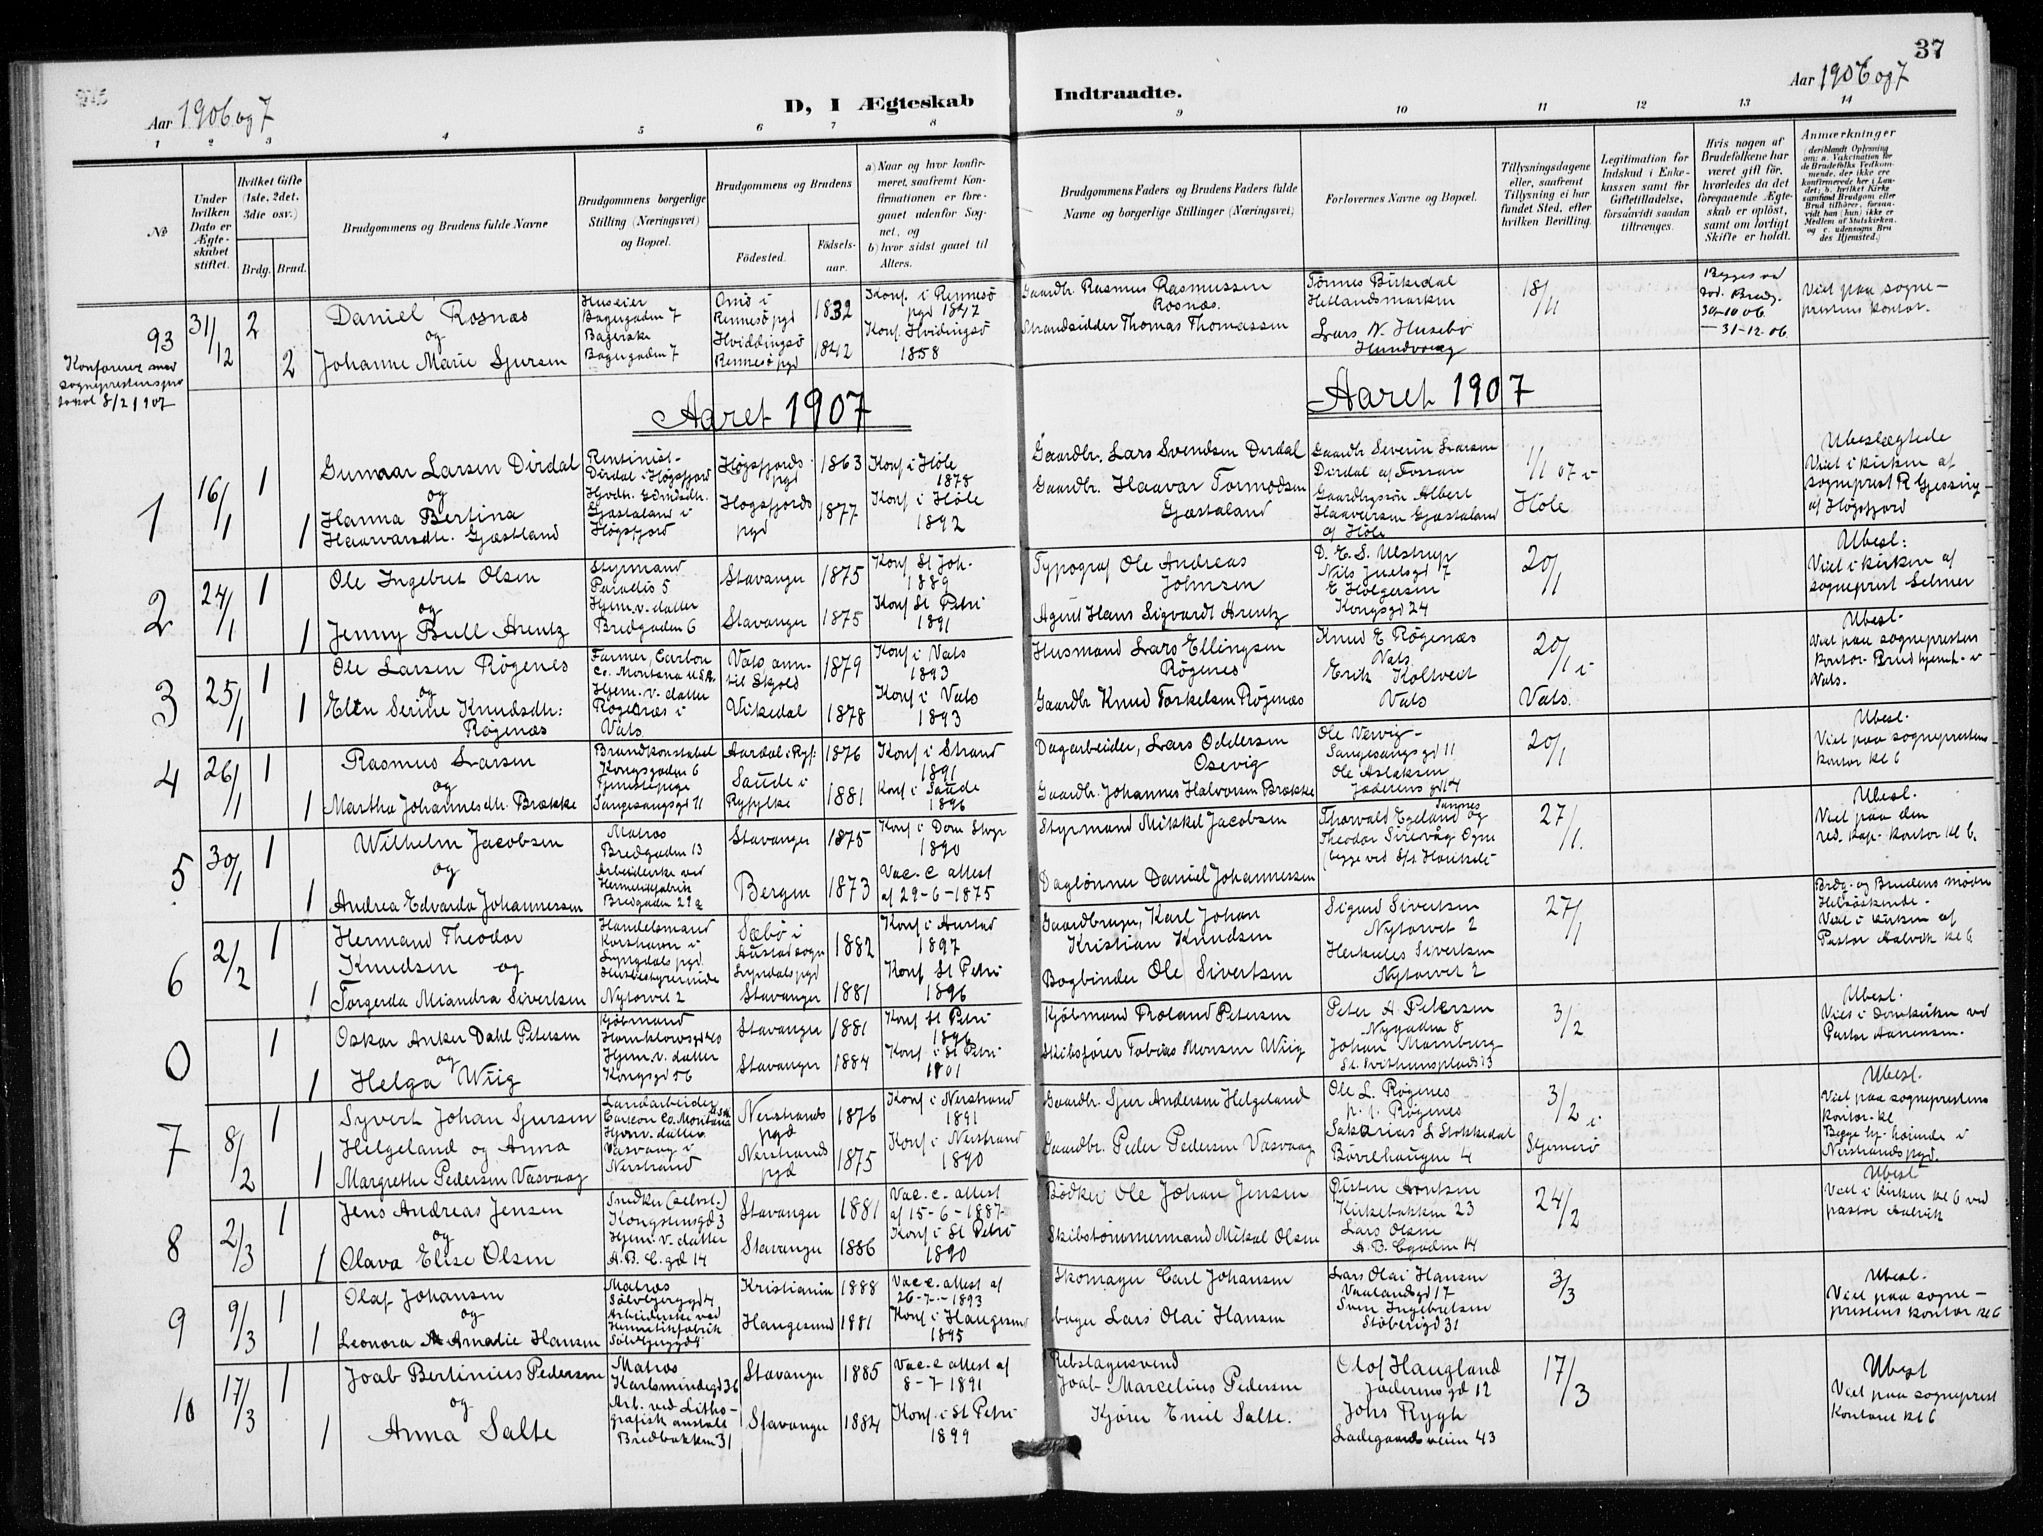 37
Aar 1906 og 7
D, I Ægteskab
Indtraadte.
Aar 1906 og 7
1 2 3 4 5 6 7 8 9 10 11 12 13 14
No
Under hvilken Dato er Ægteskabet stiftet.
Hvilket Gifte (1ste, 2det, 3die osv.)
Brdg. Brud.
Brudgommens og Brudens fulde Navne
Brudgommens borgerlige Stilling (Næringsvei) og Bopæl.
Brudgommens og Brudens
Födested. Födselsaar.
a) Naar og hvor konfirmeret, saafremt Konfirmationen er foregaaet udenfor Sognet, og
b) hvor sidst gaaet til Alters.
Brudgommens Faders og Brudens Faders fulde Navne og borgerlige Stillinger (Næringsvei)
Forlovernes Navne og Bopæl.
Tillysningsdagene eller, saafremt Tillysning ei har fundet Sted, efter hvilken Bevilling.
Legitimation for Indskud i Enkekassen samt for Giftetilladelse, forsaavidt saadan tiltrænges.
Hvis nogen af Brudefolkene har været gift för, hvorledes da det foregaaende Ægteskab er oplöst, samt om lovligt Skifte er holdt.
Anmærkninger
93
31/12 2
Daniel Rosnæs
og
2 Johanne Marie Sjursen
Huseier
Bagergaden 7
Bagerske
Bagergaden 7
Omö i
Rennesö pgd 1832
Hviddingsö
Rennesö pgd 1842
Konf. i Rennesö
pgd 1847
Konf. Hvidingsö
1858
Gaardbr. Rasmus Rasmussen
Rosnæs.
Strandsidder Thomas Thomassen
Tönnes Birkedal
Hetlandsmarken
Lars N. Husebö
Hundvaag
18/11
Begges ved
död. Brudg.
30-10 06
— 31-12. 06
Viet paa sogne-
prestens kontor.
Konfereret med
sogneprestens pro
tokol 8/2 1907
Aaret 1907
Aaret 1907
1
16/1 1
Gunnar Larsen Dirdal
og
1 Hanna Bertina
Haavarsdtr. Gjæstland
Dirdal i Högsfjord
Gjæstaland i
Högsfjord
Högsfjords
pgd 1863
Högsfjords
pgd 1877
Konf i Höle
1878
Konf i Höle
1892
Gaardbr. Lars Svendsen Dirdal
Gaardbr. Haavar Tormodsen
Gjæstaland
Gaardbr Severin Larsen
Dirdal af Forsan
Gaardbrgsön Albert
Haaversen Gjæstaland
af Höle
1/1 07 i
Höle
Ubeslægtede
Viet i kirken af
sogneprest R Gjessing
af Högsfjord
2
24/1 1
Ole Ingebret Olsen
og
1 Jenny Bull Arentz
Styrmand
Paradis 5
Hjem. v. datter
Bredgaden 6
Stavanger 1875
Stavanger 1875
Konf St Joh.
1889
Konf St Petri
1891
Typograf Ole Andreas
Johnsen
Agent Hans Sigvardt Arentz
D. E. S. Ulstrup
Nils Juelsgd 7
E Holgersen
Kongsgd 24
20/1
Ubesl:
Viet i kirken af
sogneprest Selmer
3
25/1 1
Ole Larsen Røgenes
og
1 Elen Serine Knudsdtr:
Røgenæs
Farmer, Carbon
Co. Montana U.S.A.
Hjem. v. datter
Røgenæs i
Vats
Vats, ann.
til Skjold 1879
Vikedal 1878
Konf i Vats
1893
Konf i Vats
1893
Husmand Lars Ellingsen
Røgenes
Gaardbr Knud Torkelsen Røgenæs
Knud E Røgenæs
Vats
Erik Koltveit
Vats
20/1 i
Vats.
Ubesl.
Viet paa sogneprestens
kontor. Brud hjemh. i
Vats.
4
26/1 1
Rasmus Larsen
og
1 Martha Johannesdtr. Brække
Brandkonstabel
Kongsgaden 6
Tjenestepige
Langesangsgd 11
Aardal i Ryf: 1876
Saude i
Ryfylke 1881
Konf i Strand
1891
Konf i Saude
1896
Dagarbeider, Lars Oddersen
Osevig
Gaardbr. Johannes Halvorsen Brække
Ole Vervig
Langesangsgd 11
Ole Aslaksen
Jæderensgd 14
20/1
Ubesl.
Viet paa sogneprestens
kontor kl 6
5
30/1 1
Wilhelm Jacobsen
og
1 Andrea Edvarda Johannessen
Matros
Bredgaden 13
Arbeiderske ved
Hermetikfabrik
Bredgaden 29a
Stavanger 1875
Bergen 1873
Konf i Dom Styr
1890
Vac. c attest
af 29-6-1875
Styrmand Mikkel Jacobsen
Daglönner Daniel Johannessen
Thorvald Egeland og
Theodor Sirevåg Ogne
27/1.
Ubesl.
Viet paa den
res. kap. kontor kl 6.
6
2/2 1
Hermand Theodor
Knudsen og
1 Torgerda Miandra Sivertsen
Handelsmand
Korshavn i
Lyngdals pgd
Husbestyrerinde
Nytorvet 2
Sæbö i
Austad sogn
Lyndals pgd 1882
Stavanger 1881
Konf i Austad
1897
Konf St Petri
1896
Gaardbruger, Karl Johan
Kristian Knudsen
Bogbinder Ole Sivertsen
Sigurd Sivertsen
Nytorvet 2
Herkules Sivertsen
Nytorvet 2
27/1
Brdg. og Brudens mödre
Helsöskende.
Viet i kirken af
Pastor Aalvik kl 6
0
1
Oskar Anker Dahl Petersen
og
1 Helga Wiig
Kjöbmand
Hjem. v. datter
Kongsgd 56
Stavanger 1881
Stavanger 1884
Konf St Petri
1896
Konf. i St Petri
1901
Kjöbmand Tholand Petersen
Skibsförer Tobias Monsen Wiig
Peter A Petersen
Nygaden 8
Johan Marnburg
St. Svithunsplads 13
3/2
Ubesl.
Viet i Domkirken ved
Pastor Aanensen.
7
8/2 1
Syvert Johan Sjursen
Helgeland og Anna
1 Margrethe Pedersen Vasvaag
Landarbeider
Carbon Co. Montana U.S.A
Hjem. v. datter
Vasvaag i
Nerstrand
Nerstrands
pgd 1876
Nerstrands
pgd 1875
Konf i Nerstrand
1891
Konf. i Nerstrand
1890
Gaardbr. Sjur Andersen Helgeland
Gaardbr. Peder Pedersen Vasvaag
Ole L. Røgenes
p. t. Røgenes
Sakarias S Stokkedal
Bövelhaugen 4
3/2 i
Sjernerö
Ubesl.
Viet paa sogneprestens
kontor. kl
Begge hj. hörende i
Nerstrands pgd.
8
2/3 1
Jens Andreas Jensen
og
1 Olava Elise Olsen
Snedker (selvst.)
Kongstensgd 3
Hjem. v. datter
A. B. C. gd 14
Stavanger 1881
Stavanger 1886
Vac. c. attest
af 15-6-1887
Konf i St Petri
1890
Bödker Ole Johan Jensen
Skibstömmermand Mikal Olsen
Østen Arntsen
Kirkebakken 23
Lars Olsen
A. B. Cgaden 14
24/2
Ubesl
Viet i kirken kl 6 ved
pastor Aalvik
9
9/3 1
Olaf Johansen
og
1 Leonora Amalie Hansen
Matros
Sölvbjerggd 4
Arbeiderske ved
Hermetikfabrik
Sölvbjerggd 4
Kristiania 1888
Haugesund 1881
Vac c. attest af
26-7-1893
Konf i Haugesund
1895
Skomager Carl Johansen
bager Lars Olai Hansen
Lars Olai Hansen
Vaalandsgd 17
Sven Ingebretsen
Stöberigd 31
3/3
Ubesl.
Viet paa sogne-
prestens kontor kl 6
10
17/3 1
Joab Bertinius Pedersen
og
1 Anna Salte
Matros
Karlsmindegd 36
Arb. ved Litho-
grafisk anstalt
Bredbakken 31
Stavanger 1885
Stavanger 1884
Vac. c attest af
8-7 1891
Konf. i St Petri
1899
Rebslagersvend
Joab Marcelius Pedersen
Kjören Emil Salte.
Olof Haugland
Jæderensgd 12
Jons Rygh
Ladegaardsveien 43
17/3
Ubesl
Viet paa sogneprest
kontoret kl 6